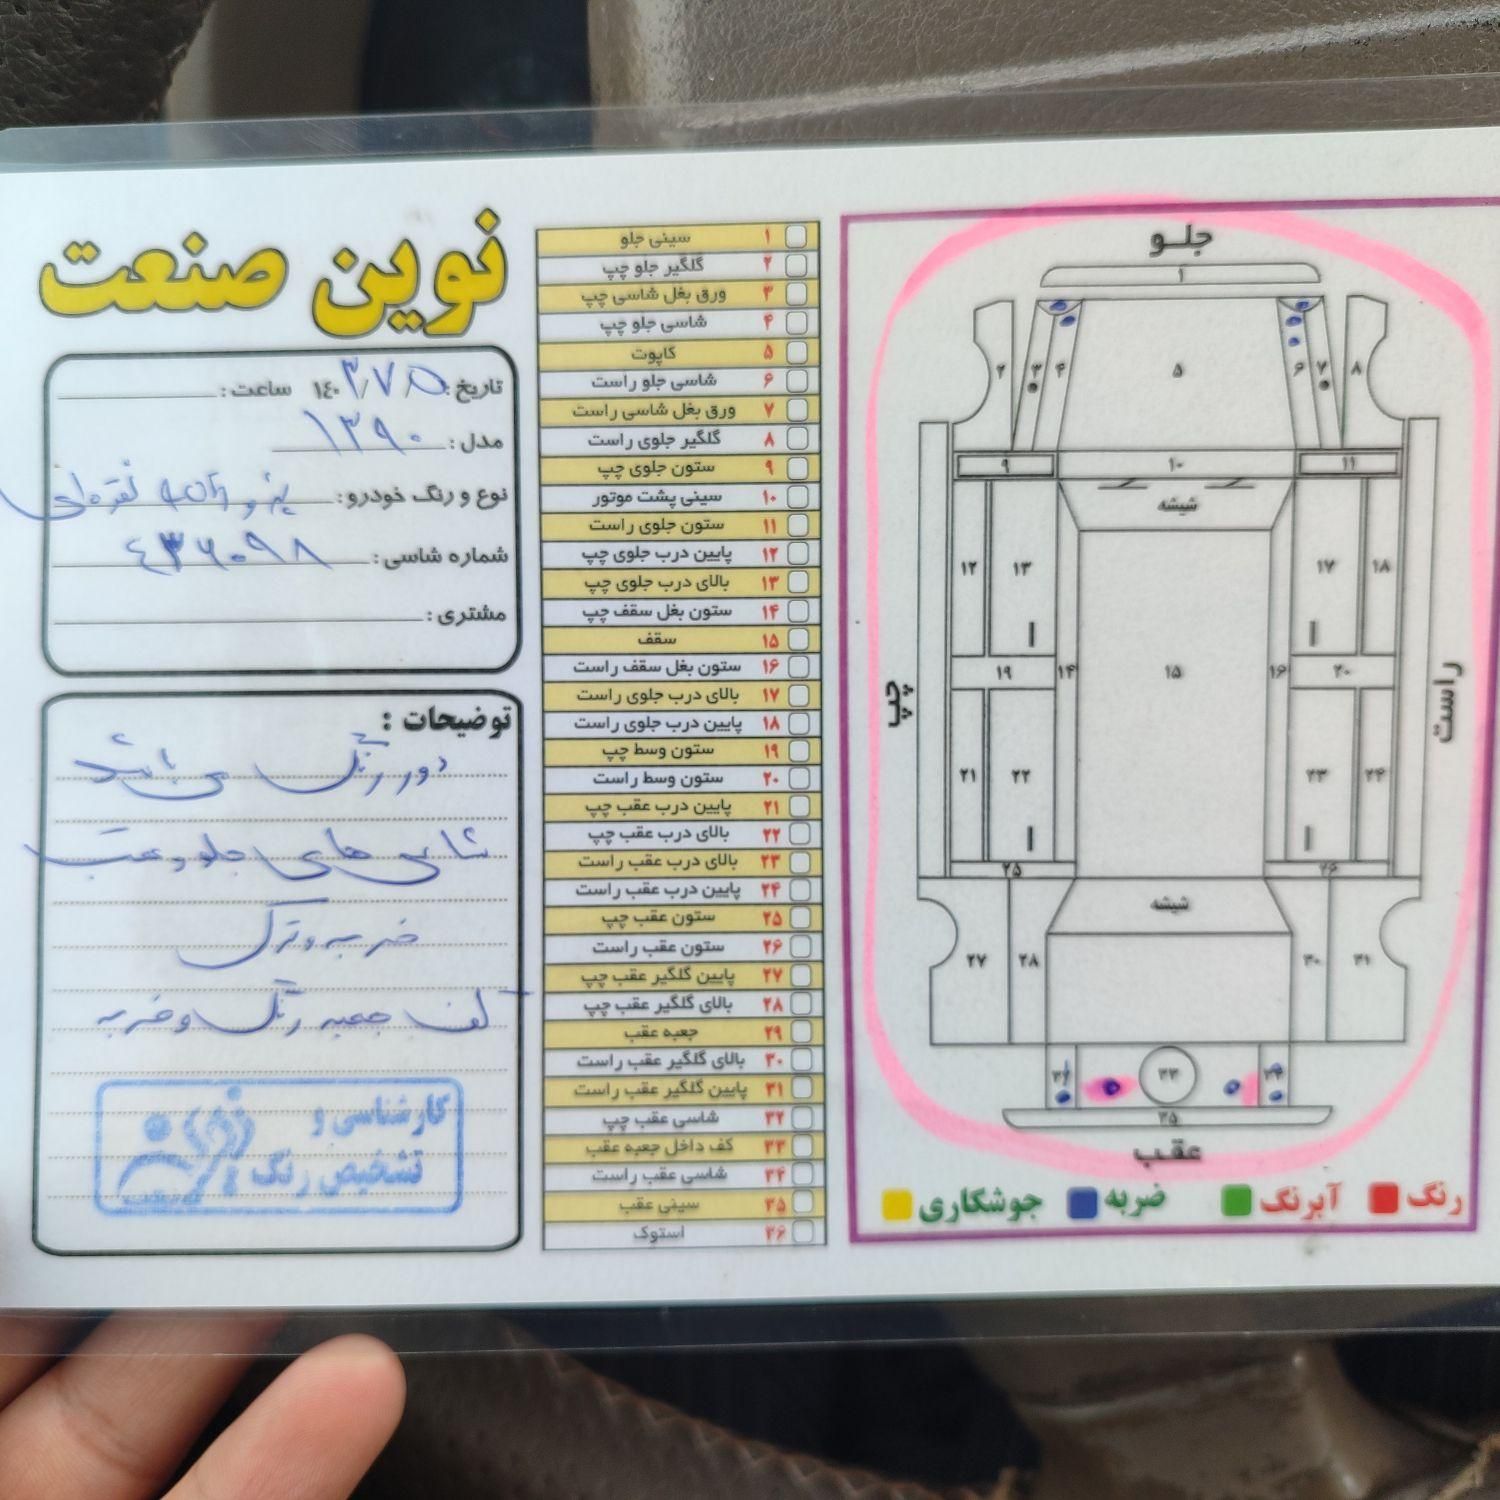 نوین صنعت
تاریخ: ۱۴۰۳/۷/۵ ساعت:
مدل: ۱۳۹۰
نوع و رنگ خودرو: پژو نقره‌ای
شماره شاسی: ۴۳۶۰۹۸
مشتری:
توضیحات:
دور رنگ می باشد
شاسی های جلو و عقب
ضربه و ترک
کف جعبه رنگ و ضربه
کارشناسی و
تشخیص رنگ
۱ سینی جلو
۲ گلگیر جلو چپ
۳ ورق بغل شاسی چپ
۴ شاسی جلو چپ
۵ کاپوت
۶ شاسی جلو راست
۷ ورق بغل شاسی راست
۸ گلگیر جلوی راست
۹ ستون جلوی چپ
۱۰ سینی پشت موتور
۱۱ ستون جلوی راست
۱۲ پایین درب جلوی چپ
۱۳ بالای درب جلوی چپ
۱۴ ستون بغل سقف چپ
۱۵ سقف
۱۶ ستون بغل سقف راست
۱۷ بالای درب جلوی راست
۱۸ پایین درب جلوی راست
۱۹ ستون وسط چپ
۲۰ ستون وسط راست
۲۱ پایین درب عقب چپ
۲۲ بالای درب عقب چپ
۲۳ بالای درب عقب راست
۲۴ پایین درب عقب راست
۲۵ ستون عقب چپ
۲۶ ستون عقب راست
۲۷ پایین گلگیر عقب چپ
۲۸ بالای گلگیر عقب چپ
۲۹ جعبه عقب
۳۰ بالای گلگیر عقب راست
۳۱ پایین گلگیر عقب راست
۳۲ شاسی عقب چپ
۳۳ کف داخل جعبه عقب
۳۴ شاسی عقب راست
۳۵ سینی عقب
۳۶ استوک
جلو
۱
۲ ۳ ۴ ۵ ۶ ۷ ۸
۹ ۱۰ ۱۱
شیشه
۱۲ ۱۳ ۱۷ ۱۸
چپ ۱۹ ۱۴ ۱۵ ۱۶ ۲۰ راست
۲۱ ۲۲ ۲۳ ۲۴
۲۵ ۲۶
شیشه
۲۷ ۲۸ ۳۰ ۳۱
۳۲ ۳۳ ۳۴
۳۵
عقب
رنگ آبرنگ ضربه جوشکاری